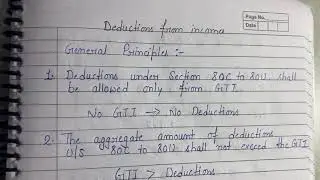 Page No.
Date
Deductions from income
General Principles :-
1. Deductions under Section 80C to 80U shall
be allowed only from GTI.
No GTI → No Deductions
2. The aggregate amount of deductions
U/S 80C to 80U shall not exceed the GTI
GTI > Deductions